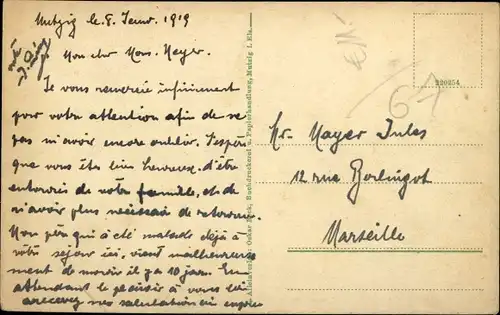 Mutzig le 8. Janv. 1919
Mon cher Mons. Mayer.
Je vous remercie infiniment
pour votre attention afin de ne
pas m'avoir encore oublié. J'espère
que vous êtes bien heureux d'être
entourés de votre famille, et de
n'avoir plus nécessité de retourner.
Mon père qui a été malade déjà à
votre séjour ici, vient malheureuse
ment de mourir il y a 10 jours. En
attendant le plaisir à vous lire
recevez mes salutations
Buchdruckerei u. Papierhandlung, Mutzig i. Els.
220254
67
Mr. Mayer Jules
12 rue Barlingot
Marseille